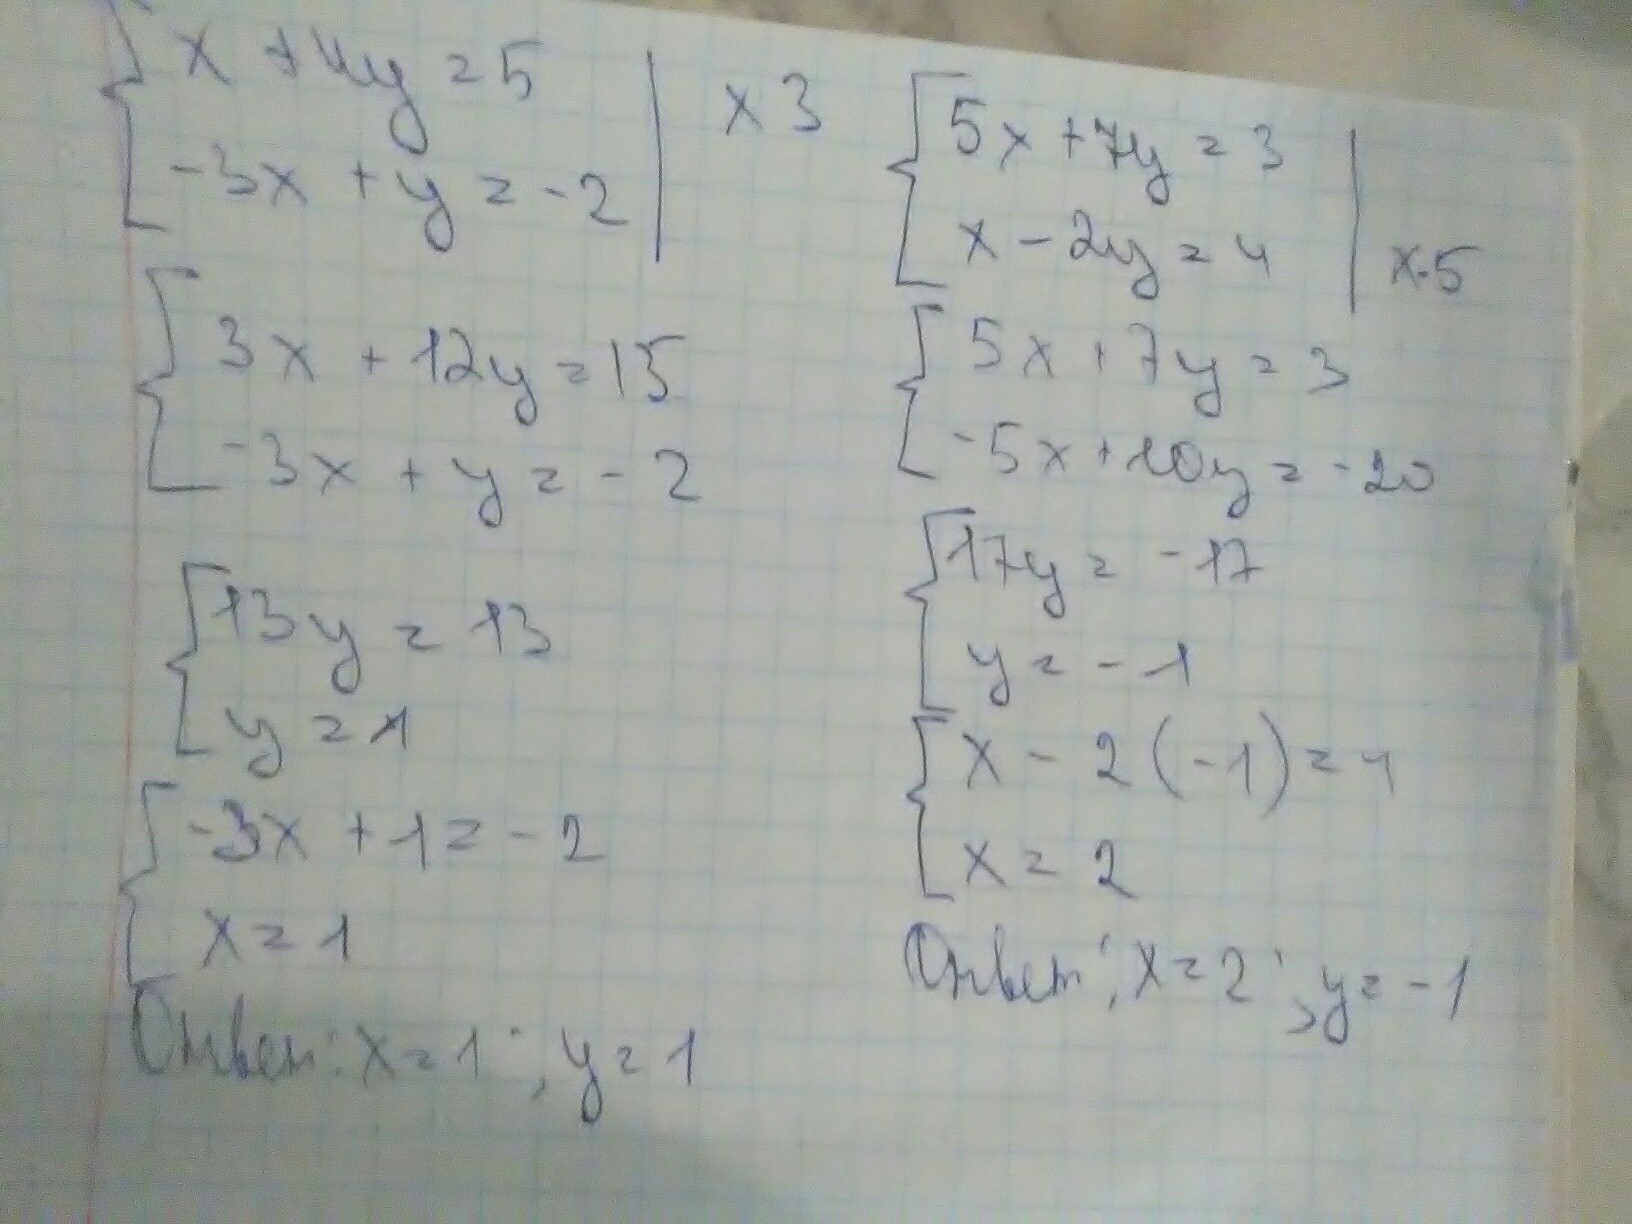 x + 4y = 5 | x 3
-3x + y = -2
3x + 12y = 15
-3x + y = -2
13y = 13
y = 1
-3x + 1 = -2
x = 1
Ответ: x = 1; y = 1
5x + 7y = 3
x - 2y = 4 | x-5
5x + 7y = 3
-5x + 10y = -20
17y = -17
y = -1
x - 2(-1) = 4
x = 2
Ответ: x = 2; y = -1